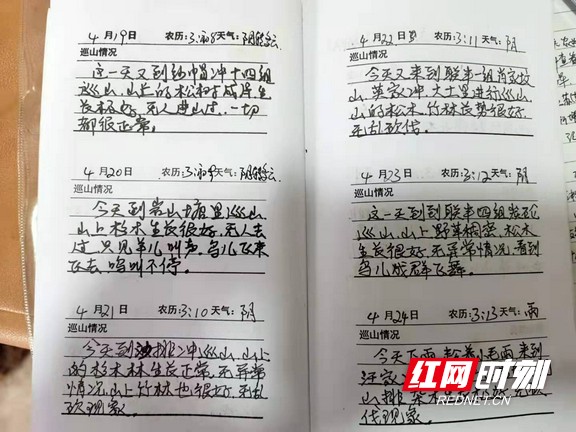 4月19日 农历:3:初8 天气:阴转多云
巡山情况
这一天又到 冲十四组
巡山,山上的松树成片生
长极好,无人进山过,一切
都很正常。
4月20日 农历:3:初9 天气:阴转多云
巡山情况
今天到 山 里巡山
山上杉木生长很好,无人去
过,只见单儿叫声,鸟儿飞来
飞去,鸣叫不停。
4月21日 农历:3:10 天气:阴
巡山情况
今天到 排冲巡山,山上
的杉木林生长正常,无异常
情况,山上竹林也很好,无乱
砍现象。
4月22日 农历:3:11 天气:阴
巡山情况
今天又来到联丰一组肖家
山,英家冲,大土里进行巡山,
山的松木,竹林长势很好,
无乱砍伐。
4月23日 农历:3:12 天气:阴
巡山情况
这一天到到联丰四组 
巡山,山上野草稠密,松木
生长很好,无异常情况,看到
鸟儿成群飞舞。
4月24日 农历:3:13 天气:雨
巡山情况
今天下雨,趁着小毛雨来到
汪家
山排
伐现象。
红网时刻
REDNET.CN